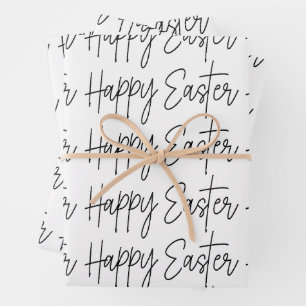 Easter
r Happy Easter -
r Happy Easter -
r Happy Easter -
r Happy Easter -
r Happy Easter -